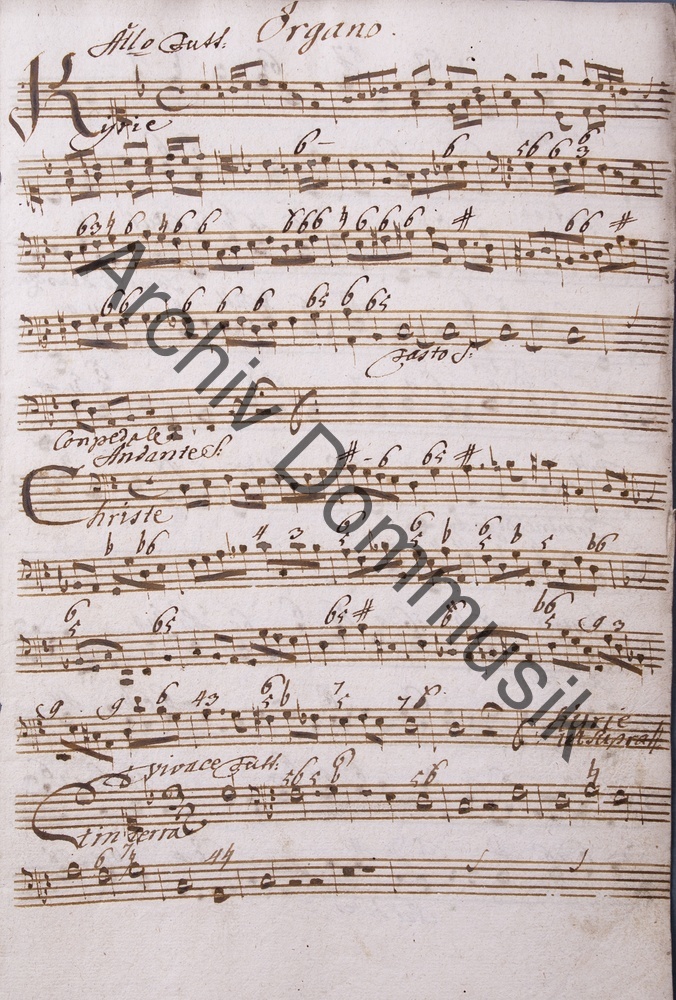 Organo.
All.o Tutt:
Kyrie
6 –
6
5 6 6 6
3
6 3 4 6 4 6 6
6 6 6 4 6 6 6 #
6 6 #
6 6 6 6 6 6 5 6 6 5
Tasto S:
Con pedale
Andante S:
# - 6 6 5 #
Christe
b b6 4 3 6 5 6 5 b 6 5 b 5 b6
6 5 6 5 6 5 # b6 5 9 3
9 9 6 4 3 6 5 b 7 5 7 8.
Kyrie
ut supra
Vivace Tutt:
5 6 5 6 5 6
Et in terra
6 4 4
Archiv Dommusik